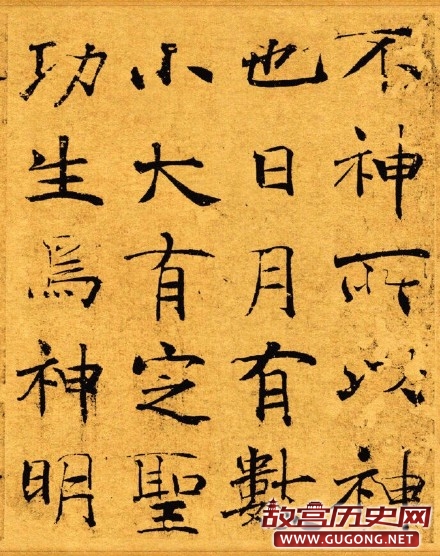 不神所以神
也日月有數
小大有定聖
功生焉神明
故宫历史网
WWW.GUGONG.NET